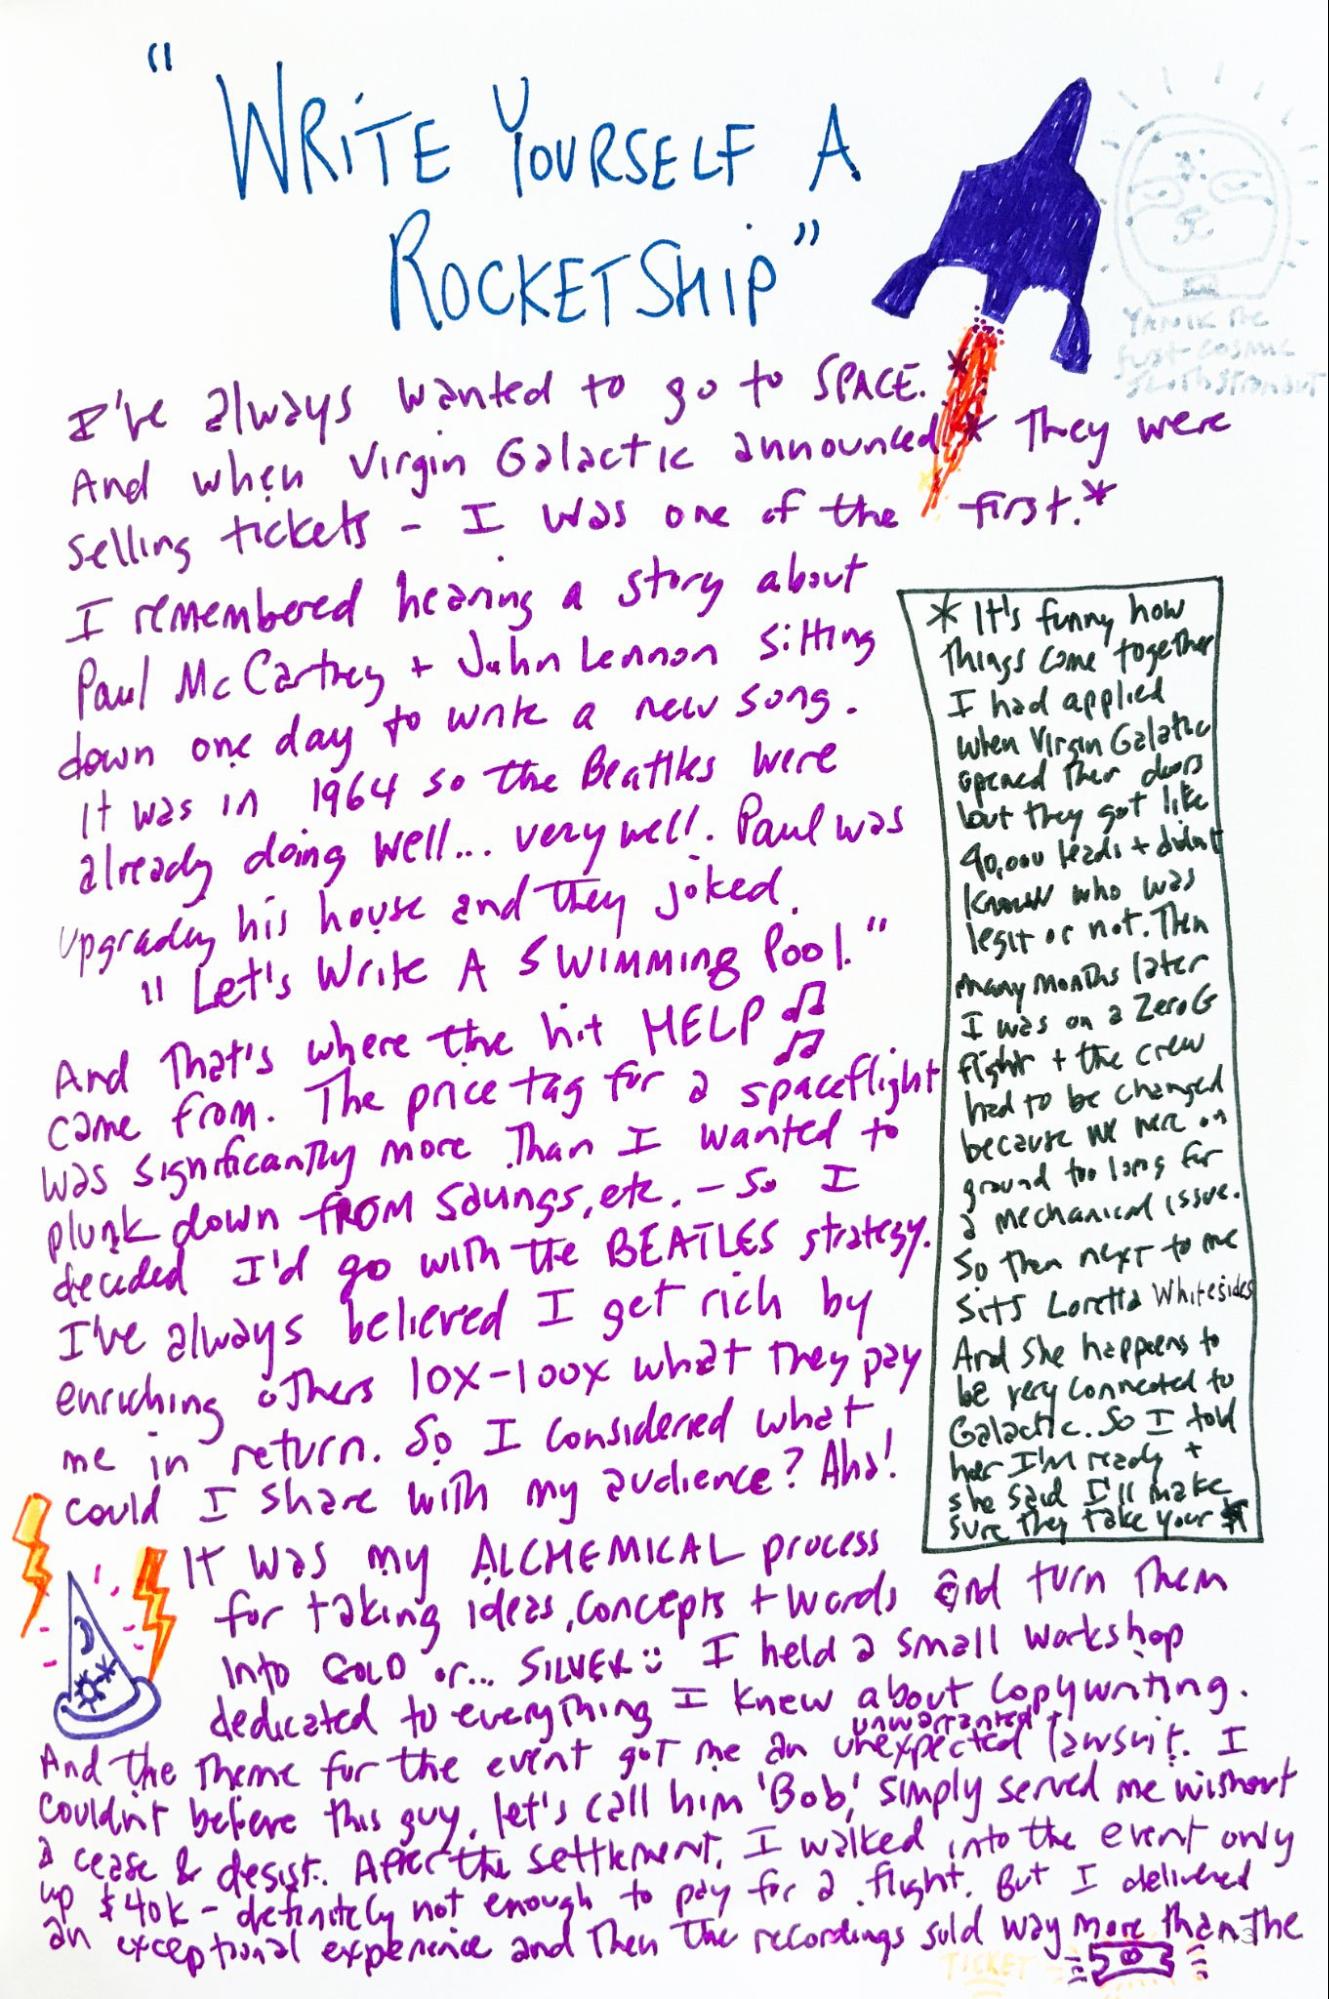 "WRITE YOURSELF A
ROCKETSHIP"
YANIK the
first cosmic
slothstronaut
I've always wanted to go to SPACE. *
And when Virgin Galactic announced * They were
selling tickets - I was one of the first.*
I remembered hearing a story about
Paul McCartney + John Lennon sitting
down one day to write a new song.
It was in 1964 so the Beattles were
already doing well... very well. Paul was
upgrading his house and they joked.
"Let's Write A SWIMMING Pool."
And That's where the hit HELP
came from. The price tag for a spaceflight
was significantly more Than I wanted to
plunk down FROM savings, etc. - So I
decided I'd go with the BEATLES strategy.
I've always believed I get rich by
enriching others 10x-100x what they pay
me in return. So I considered what
could I share with my audience? Aha!
It was my ALCHEMICAL process
for taking ideas, concepts + words and turn Them
into GOLD or... SILVER I held a small workshop
dedicated to everything I knew about copywriting.
unwarranted +
And the Theme for the event got me an unexpected lawsuit. I
couldn't believe this guy, let's call him 'Bob', simply served me without
a cease & desist. After the settlement, I walked into the event only
up $40k - definitely not enough to pay for a flight. But I delivered
an exceptional experience and Then The recordings sold way more than The
TICKET
* It's funny how
Things come together
I had applied
when Virgin Galatic
opened Their doors
but they got like
40,000 leads + didn't
know who was
legit or not. Then
many months later
I was on a ZeroG
flight + the crew
had to be changed
because we were on
ground too long for
a mechanical issue.
So then next to me
sits Loretta Whitesides
And she happens to
be very connected to
Galactic. So I told
her I'm ready +
she said I'll make
sure they take your $